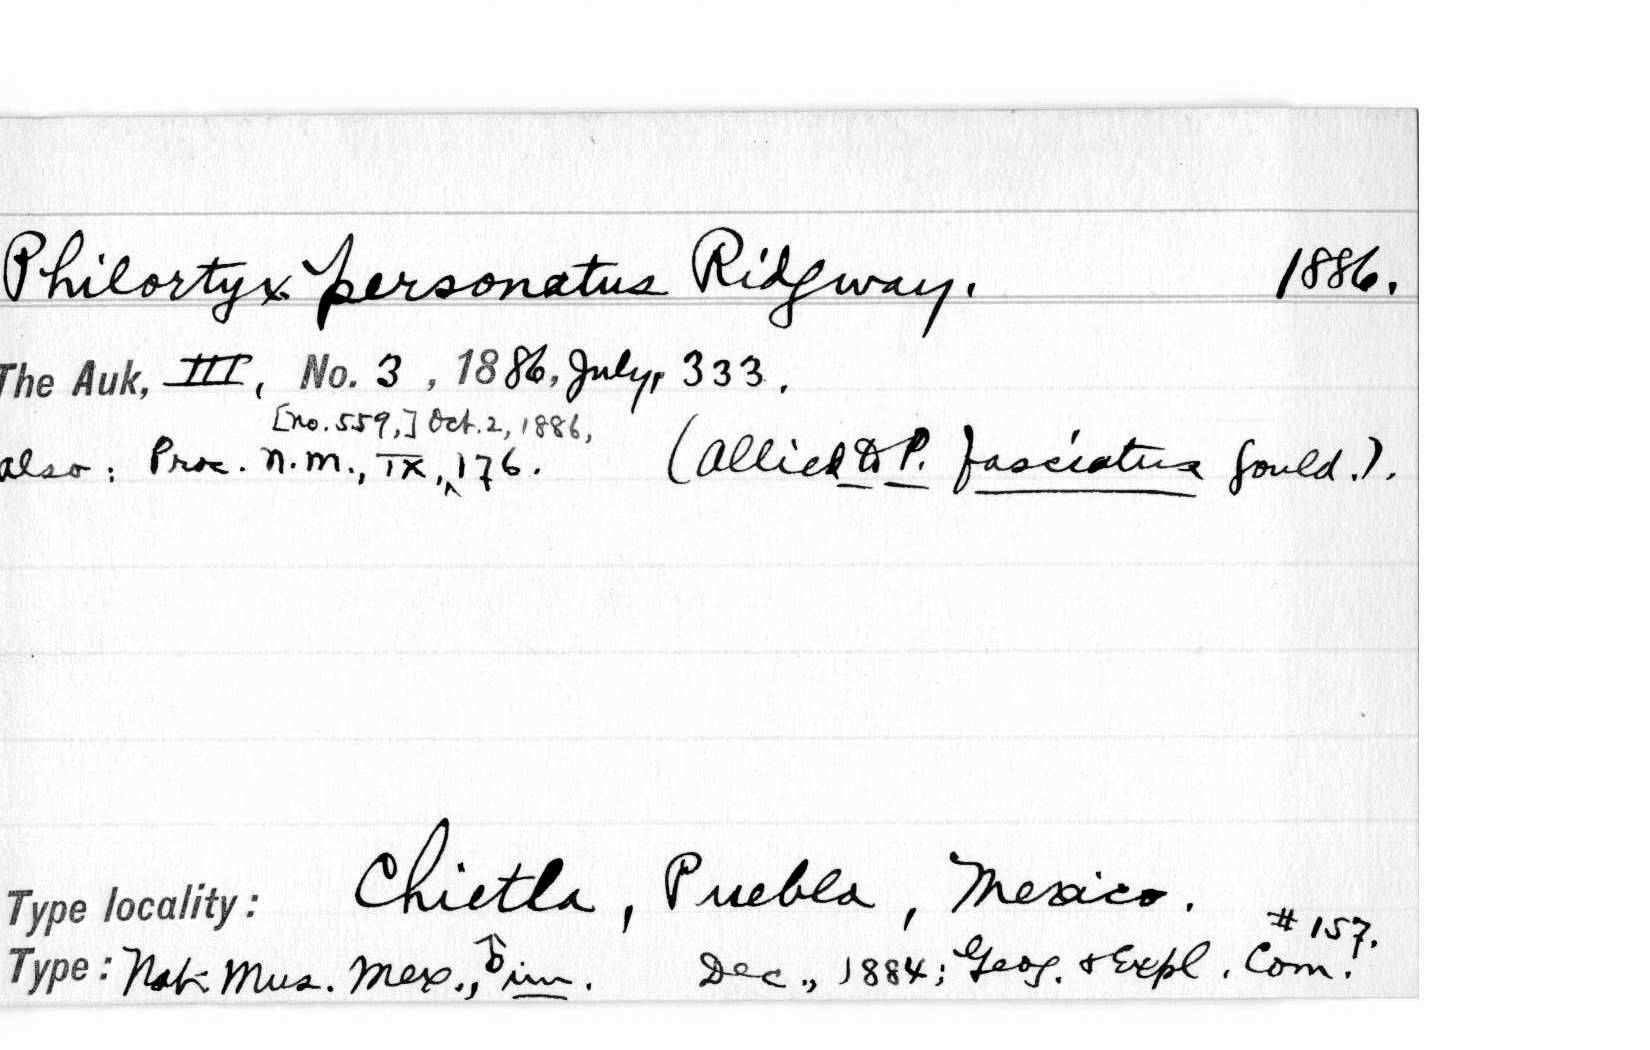 Philortyx personatus Ridgway. 1886.
The Auk, III, No. 3, 1886, July, 333.
[no. 559,] Oct. 2, 1886,
also: Proc. N.M., IX, ^ 176. (allied to P. fasciatus Gould.).
Type locality: Chietla, Puebla, Mexico.
#157.
Type: Nat. Mus. Mex., ♂ im. Dec., 1884; Geog. & Expl. Com.